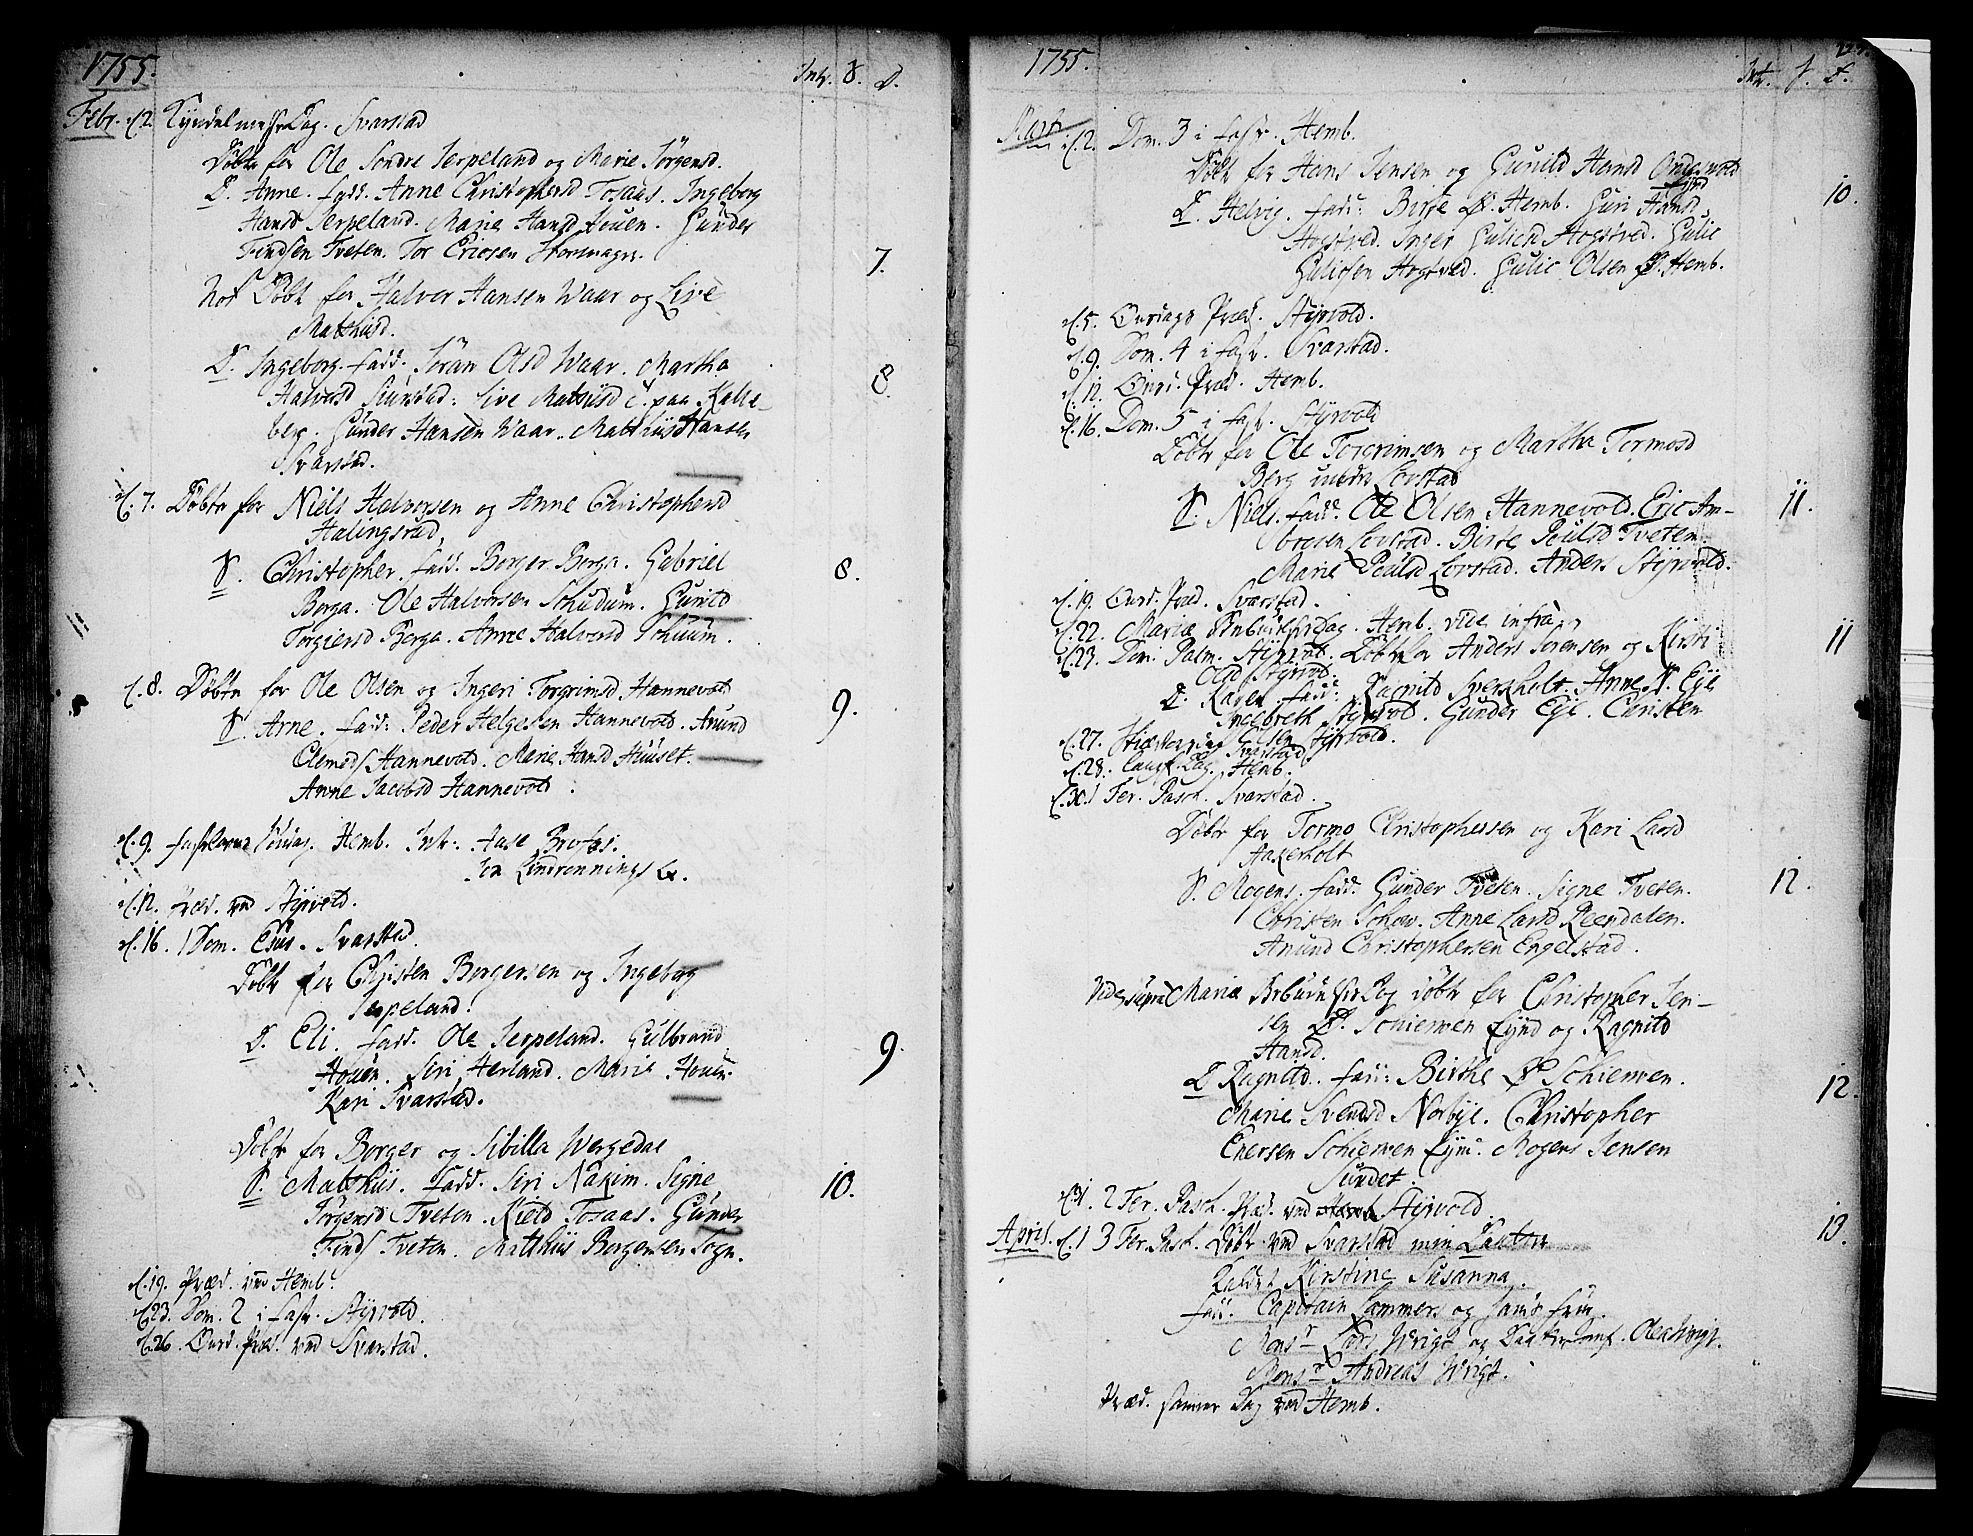 1755.
Intr. F. D.
Febr. d. 2. Kyndelmesse Dag. Svarstad
Döbt for Ole Sondre Serpeland og Marie Jörgensd.
D. Anne. fadd. Anne Christophersd Fosaas. Ingeborg
Hansd Serpeland. Marie Hansd Houen. Gunder
Findsen Tveten. Tor Ericsen
7.
Not Döbt for Halvor Hansen Waar og Live
Matthiisd.
D. Ingeborg. fadd. Joran Olsd Waar. Martha
8.
Halvorsd Svarstad. Live Matthisd E. paa Kalle-
berg. Gunder Hansen Waar. Matthiis Hansen
Svarstad.
d. 7. Döbt for Niels Halvorsen og Anne Christophersd
Halingstad,
S. Christopher. fadd. Borger Berga. Gabriel
8.
Berga. Ole Halvorsen Schuum. Gunild
Torgiersd Berga. Anne Halvorsd Schuum.
d. 8. Döbte for Ole Olsen og Ingeri Torgrimsd Hannevold
9.
S. Arne. fadd. Peder Helgesen Hannevold. Anund
Clemeds. Hannevold. Marie Hansd Huuset.
Anne Jacobsd Hannevold.
d. 9. fastelavns Söndag. Hemb. Intr. Aase Brofos.
Jon Lindronnings
d. 12. Præd. ved Styrvold.
d. 16. 1 Dom. Svarstad.
Döbt for Christen Borgersen og Ingeborg
Serpeland.
D. Eli. fadd. Ole Serpeland. Gulbrand
9.
Houen. Siri Herland. Marie Houen.
Kari Svarstad.
Döbt for Borger og Sibilla Wergedal
S. Matthiis. fadd. Siri Nakim. Signe
10.
Jörgensd Tveten. Kield Fosaas. Gunder
Finds. Tveten. Matthiis Borgersen Sogn.
d. 19. Præd. ved Hemb.
d. 23. Dom. 2 i fast. Styrvold.
d. 26. Onsd. Præd. ved Svarstad.
1755.
Intr. F. D.
Mart. d. 2. Dom. 3 i fast. Hemb.
Döbt for Hans Jensen og Gunild Hansd
10.
D. Helvig. fadd. Birte Hemb. Guri Hansd
Hogstved. Inger Gulicsd Hogstved. Gulic
Gulicsen Hogstved. Gulic Olsen Hemb.
d. 5. Onsdags Præd. Styrvold.
d. 9. Dom. 4 i fast. Svarstad.
d. 12. Onsd. Præd. Hemb.
d. 16. Dom. 5 i fast. Styrvold
Döbt for Ole Torgrimsen og Martha Tormosd
Berg under Lovstad
S. Niels. fadd. Ole Olsen Hannevold. Eric Am-
11.
bresen Lovstad. Birte Poulsd Tveten.
Marie Poulsd Lovstad. Anders Styrvold.
d. 19. Onsd. Præd. Svarstad.
d. 22. Mariæ Dag. Hemb. vide infra
d. 23. Dom. Palm. Styrvold. Döbt for Anders Sörensen og Kirsti
11
Olsd Styrvold.
D. Karen. fadd. Ragnild Sverkholt. Anne N. Eye
Ingebreth Styrvold. Gunder Eye. Christen
d. 27. Olsen Styrvold.
Svarstad
d. 28. Lang. Dag. Hemb.
d. 30. 1 Fer. Pasch. Svarstad.
Döbt for Tormo Christophersen og Kari Larsd
Aakerholt
S. Mogens. fadd. Gunder Tveten. Signe Tveten.
12.
Christen Schow. Anne Larsd Reendalen.
Anund Christophersen Engelstad.
Vide supra Mariæ Dag döbt for Christopher Jen-
sen Schiewen Eynd og Ragnild
Hansd.
D. Ragnild. fadd. Birthe Schiewen.
12.
Marie Svendsd Norbye. Christopher
Enersen Schiewen Mogens Jensen
Sundet.
d. 31. 2 Fer. Pasch. Præd. ved Styrvold.
April. d. 1 3 Fer. Pasch. Döbt ved Svarstad min Datter
13.
Kaldet Kirstine Susanna.
fadd. Capitain Lammers og hans frue.
Mons.r Lars Wrigt og Olea Wrigt.
Mons.r Andreas Wrigt.
Præd. samme Dag ved Hemb.